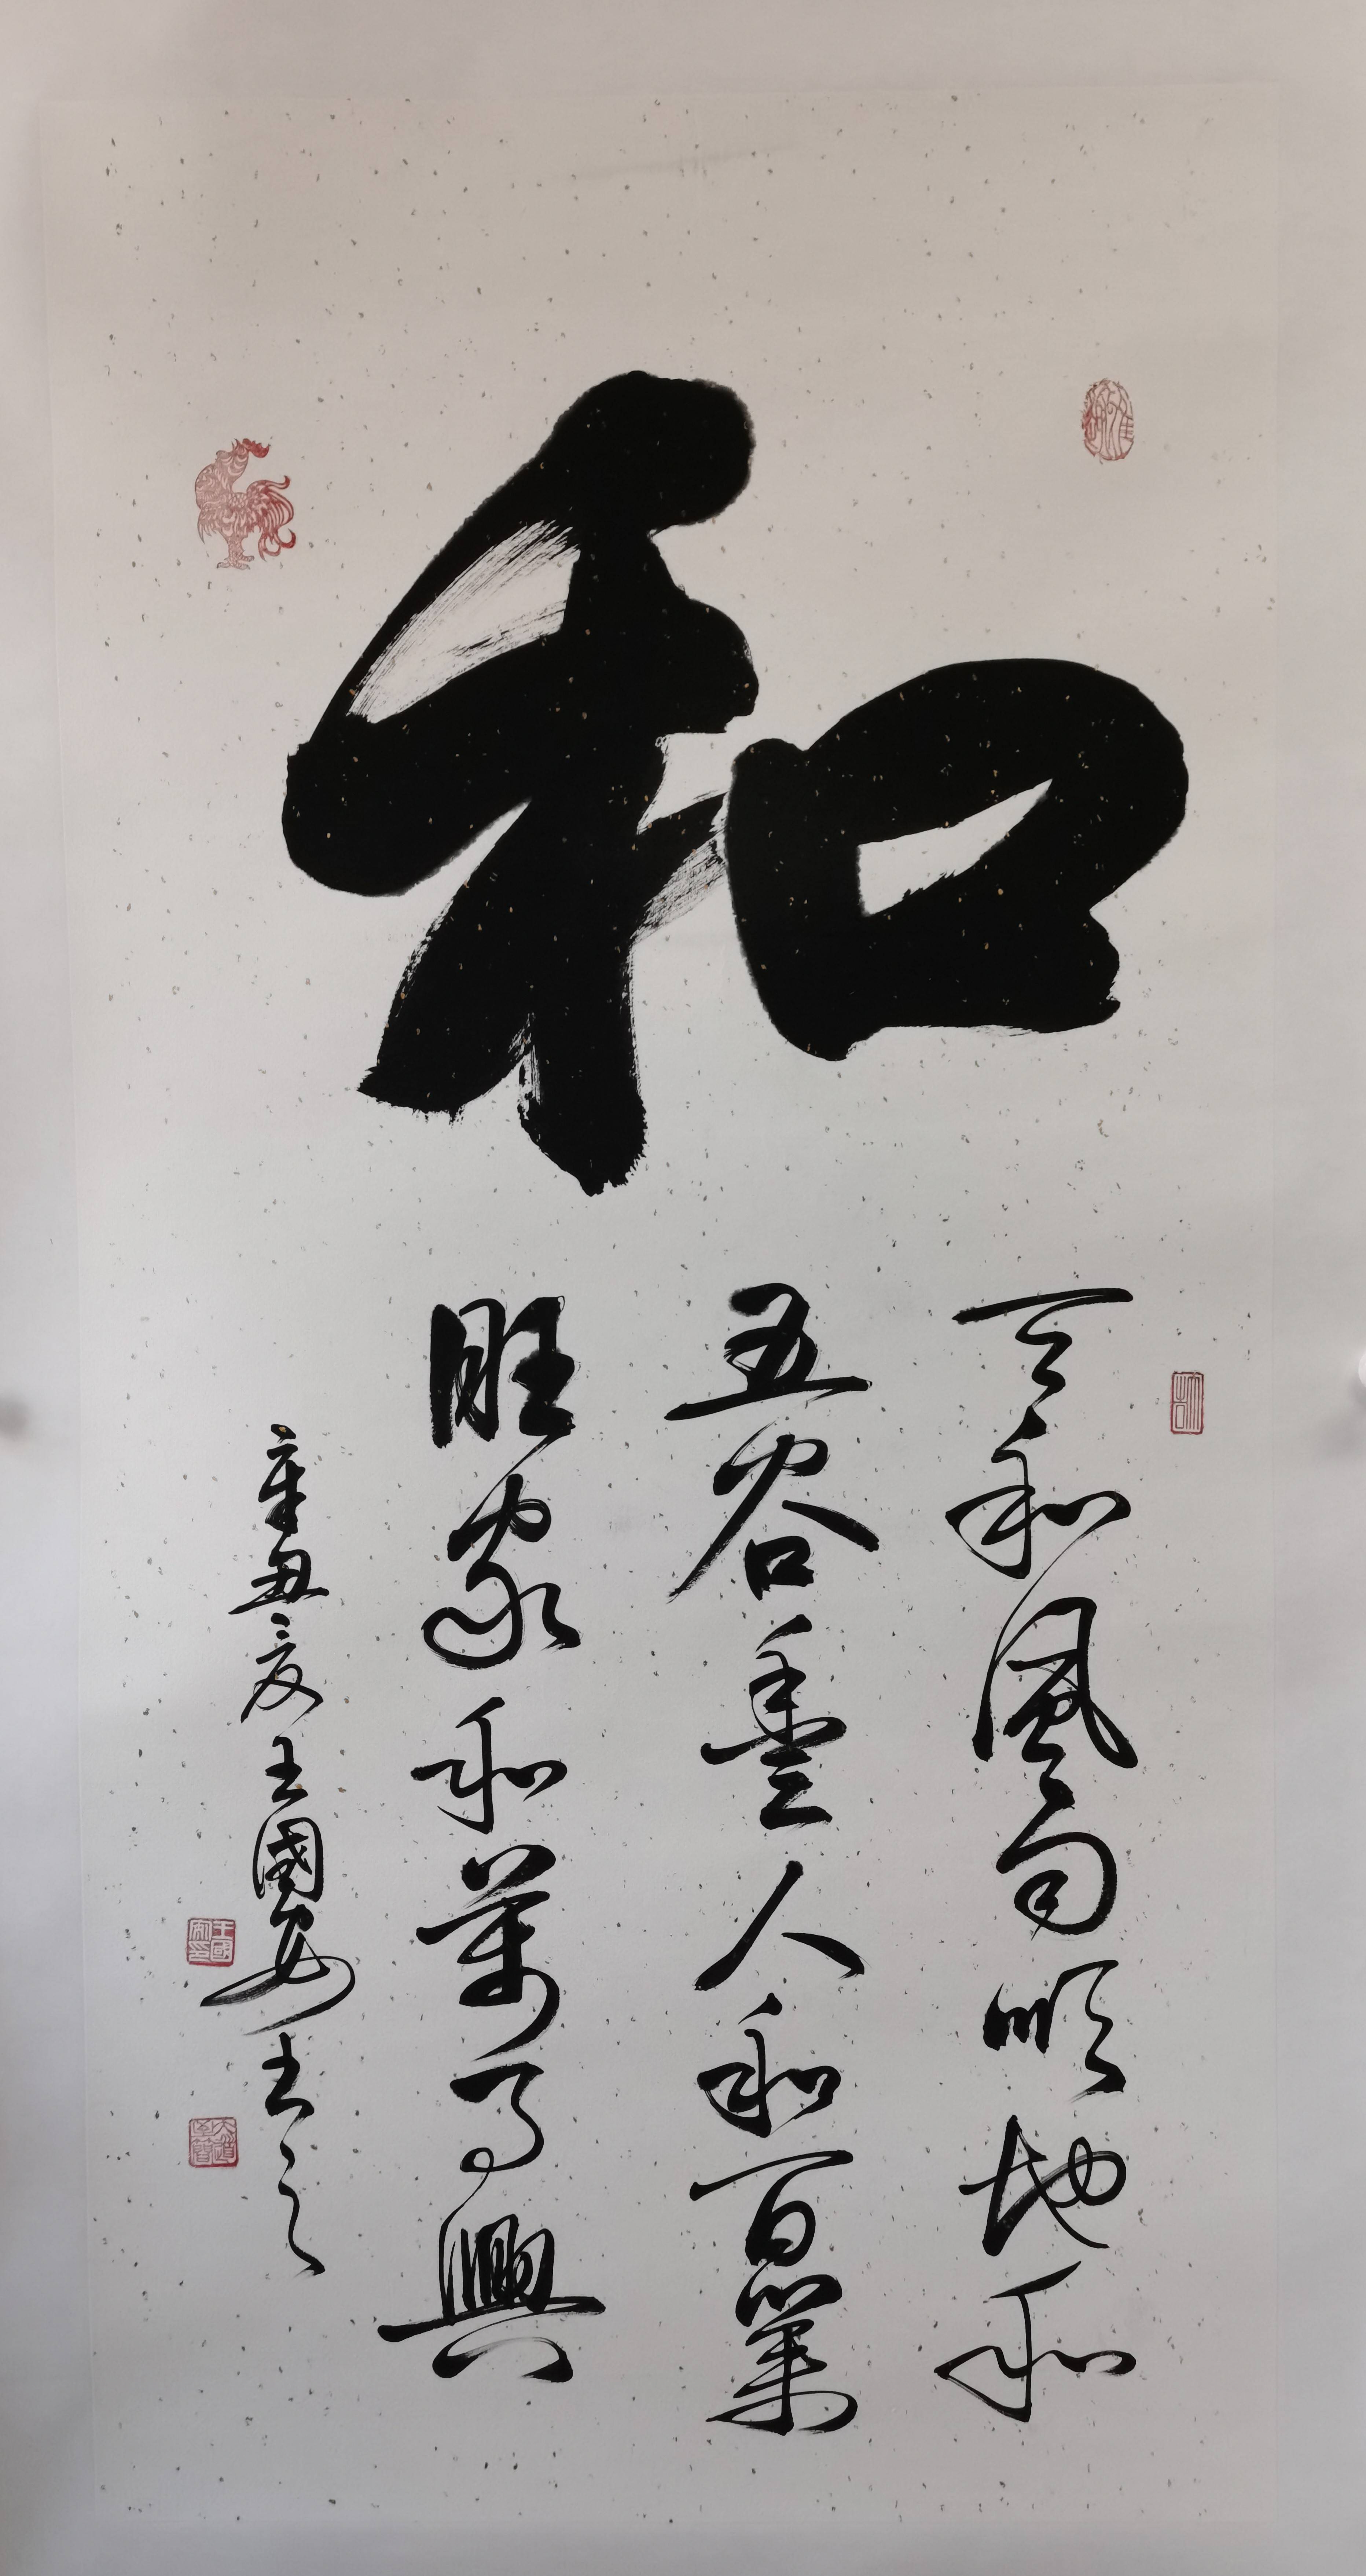 和
天和風雨順地和
五谷豐人和百業
旺家和萬事興
辛丑夏王國安書之
王國安印